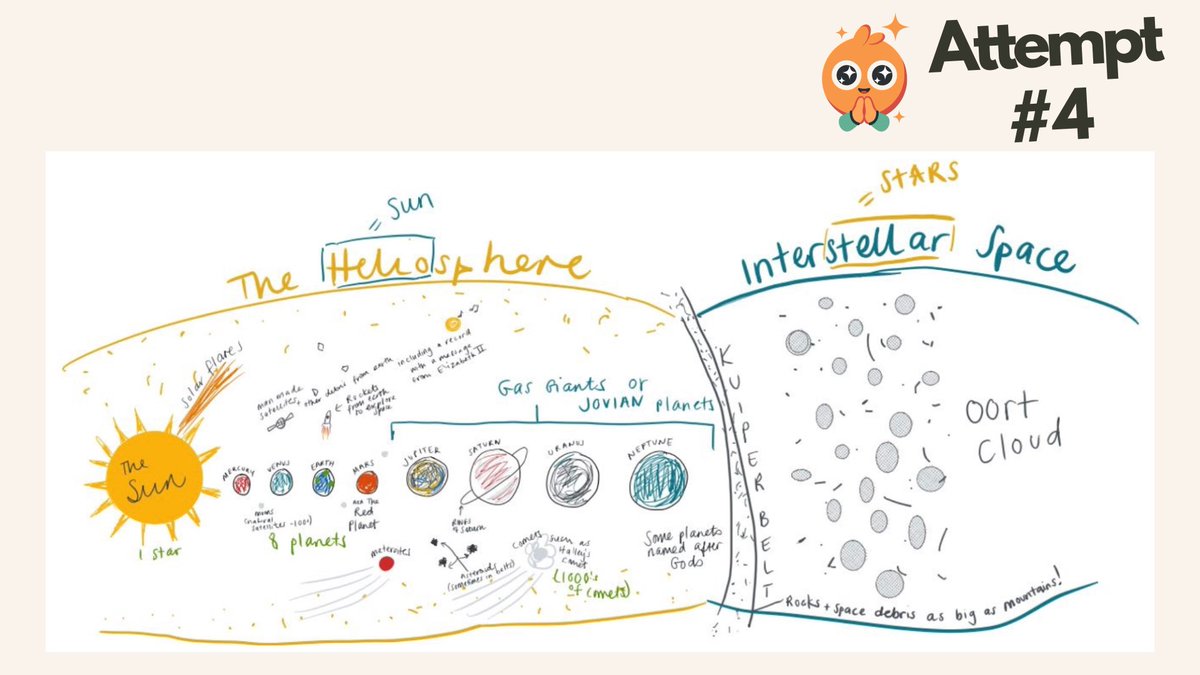 Attempt
#4
= Sun
= STARS
The Heliosphere
Interstellar Space
Solar flares
man made
satellites,
other debris from earth
Rockets
from earth
to explore
space
including a record
with a message
from Elizabeth II
Gas Giants or
JOVIAN planets
The
Sun
MERCURY
VENUS
EARTH
MARS
JUPITER
SATURN
URANUS
NEPTUNE
KUIPER BELT
OORT
Cloud
moons
(natural
satellites ~100+)
AKA The
Red
Planet
RINGS
of Saturn
1 star
8 planets
meterorites
Asteroids
(sometimes in belts)
Comets
such as
Halley's
comet
(1000's
of comets)
Some planets
named after
Gods
Rocks + space debris as big as mountains!